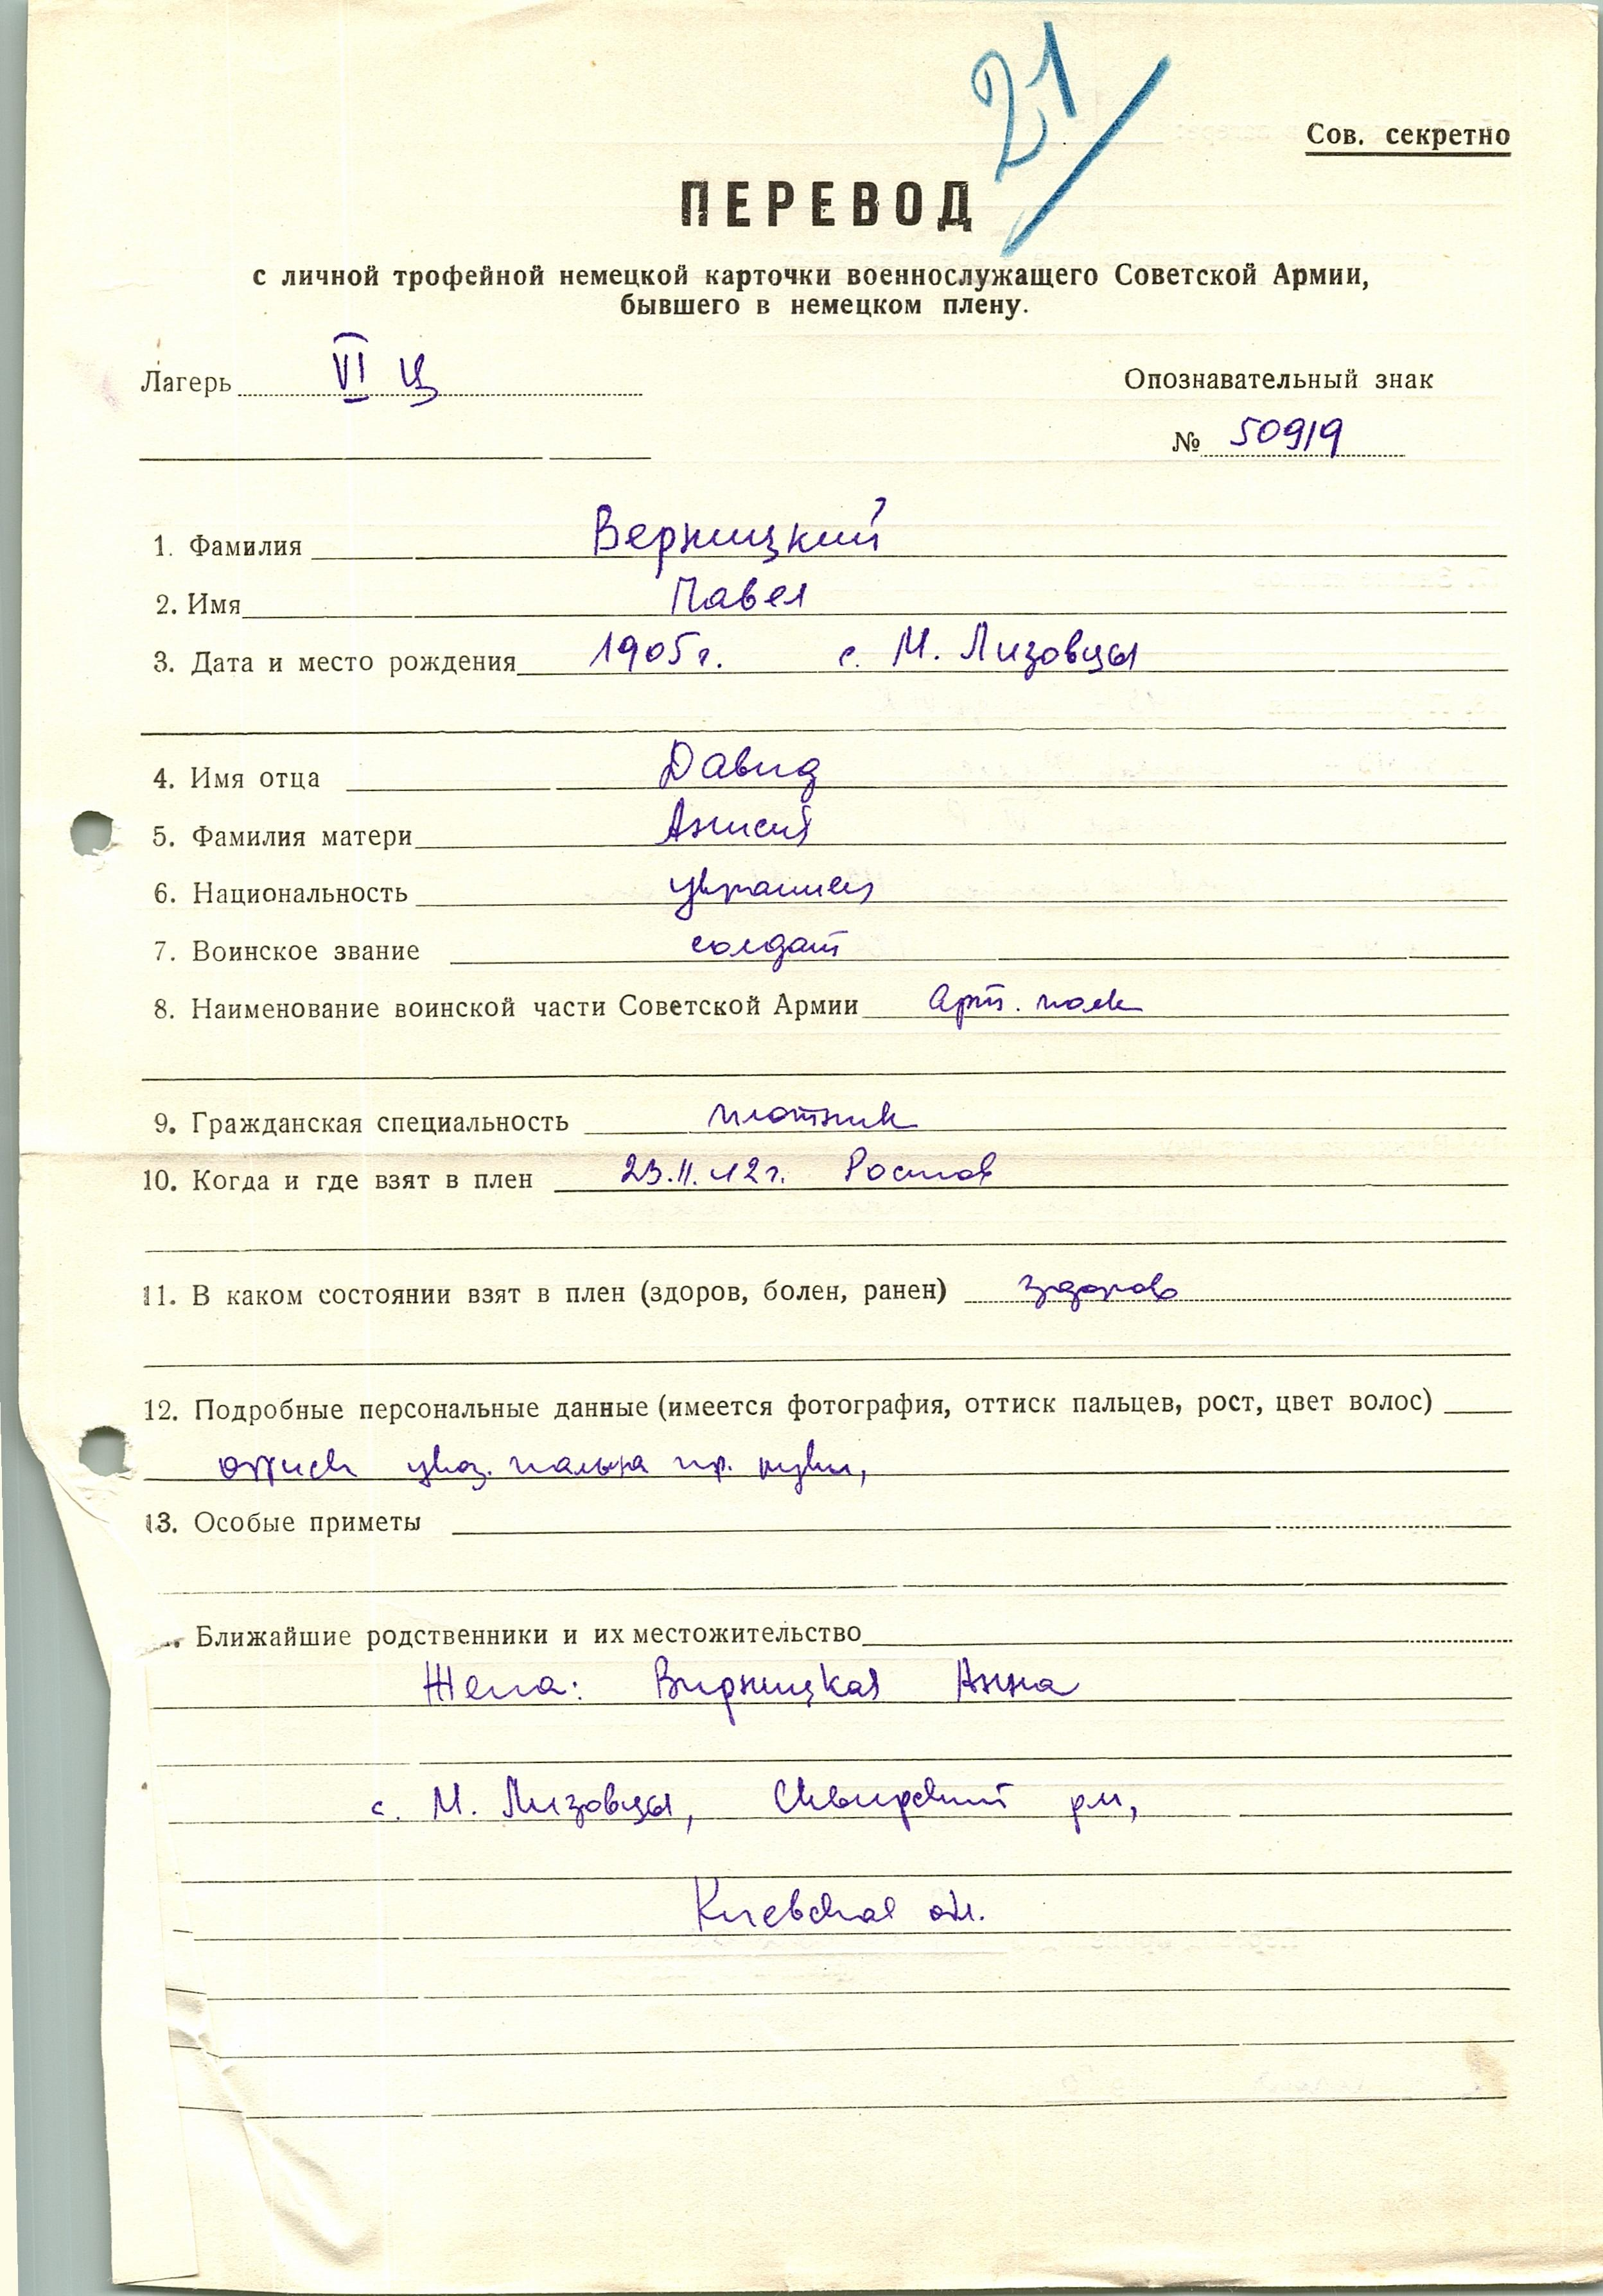 21/
Сов. секретно
ПЕРЕВОД
с личной трофейной немецкой карточки военнослужащего Советской Армии,
бывшего в немецком плену.
Лагерь VI Ц
Опознавательный знак
№ 50919
1. Фамилия Верницкий
2. Имя Павел
3. Дата и место рождения 1905г. с. М. Лизовцы
4. Имя отца Давид
5. Фамилия матери
6. Национальность украинец
7. Воинское звание солдат
8. Наименование воинской части Советской Армии Арт. полк
9. Гражданская специальность плотник
10. Когда и где взят в плен 23.11.42г. Ростов
11. В каком состоянии взят в плен (здоров, болен, ранен) здоров
12. Подробные персональные данные (имеется фотография, оттиск пальцев, рост, цвет волос)
оттиск указ. пальца пр. руки,
13. Особые приметы
. Ближайшие родственники и их местожительство
Жена: Вирницкая Анна
с. М. Лизовцы, Сквирский рн,
Киевская обл.